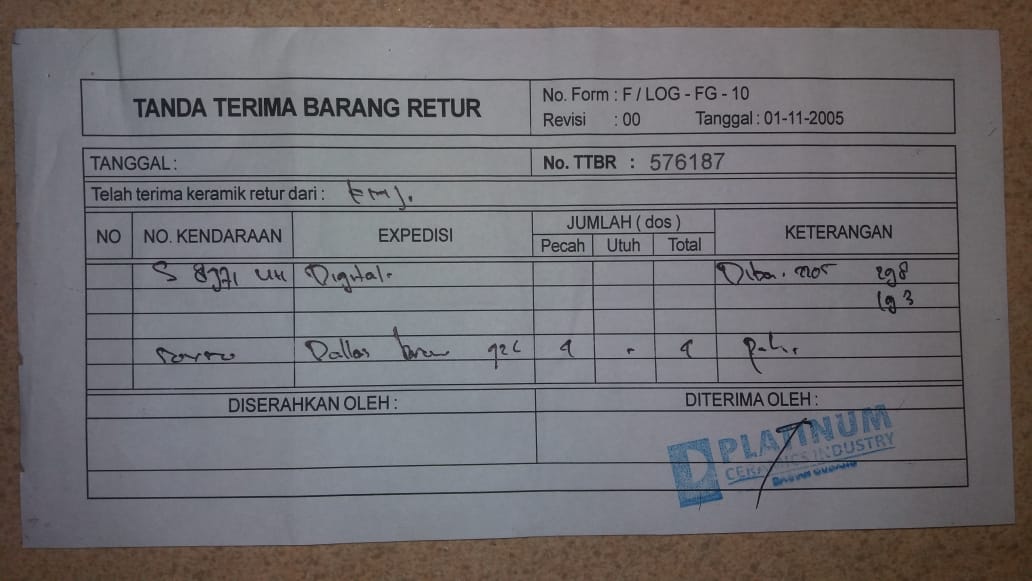 TANDA TERIMA BARANG RETUR
No. Form : F / LOG - FG - 10
Revisi : 00 Tanggal : 01-11-2005
TANGGAL :
No. TTBR : 576187
Telah terima keramik retur dari : EMJ.
NO NO. KENDARAAN EXPEDISI JUMLAH ( dos ) KETERANGAN
Pecah Utuh Total
Digital.
Dallas
DISERAHKAN OLEH : DITERIMA OLEH :
PLATINUM
CERAMICS INDUSTRY